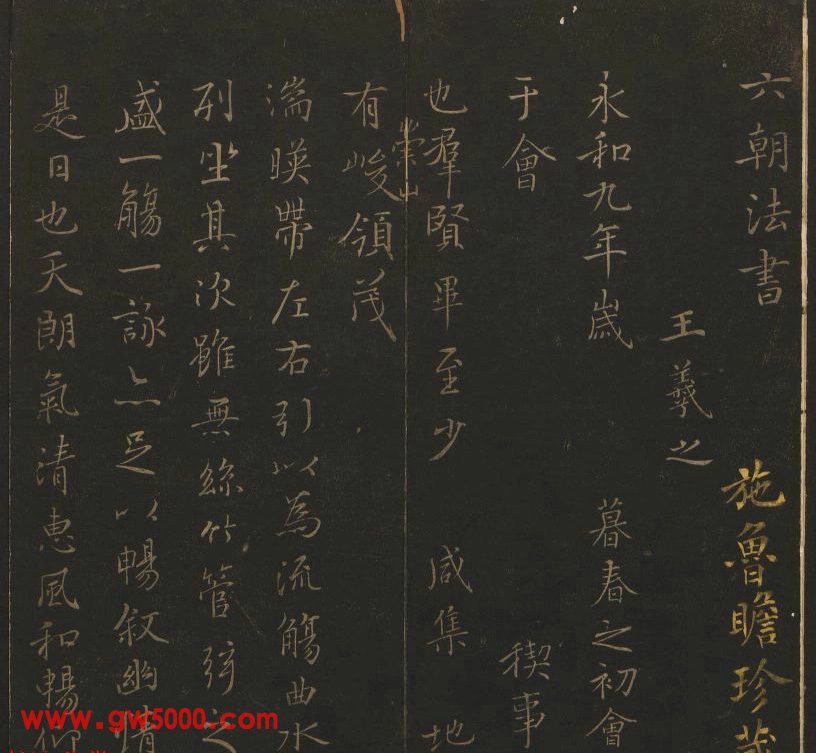 六朝法書
施魯瞻珍
王羲之
永和九年歲 暮春之初會
于會 稧事
也羣賢畢至少 咸集 地
有崇山峻領茂
湍暎帶左右引以為流觴曲水
列坐其次雖無絲竹管弦之
盛一觴一詠亦足以暢敘幽情
是日也天朗氣清惠風和暢仰
www.gw5000.com